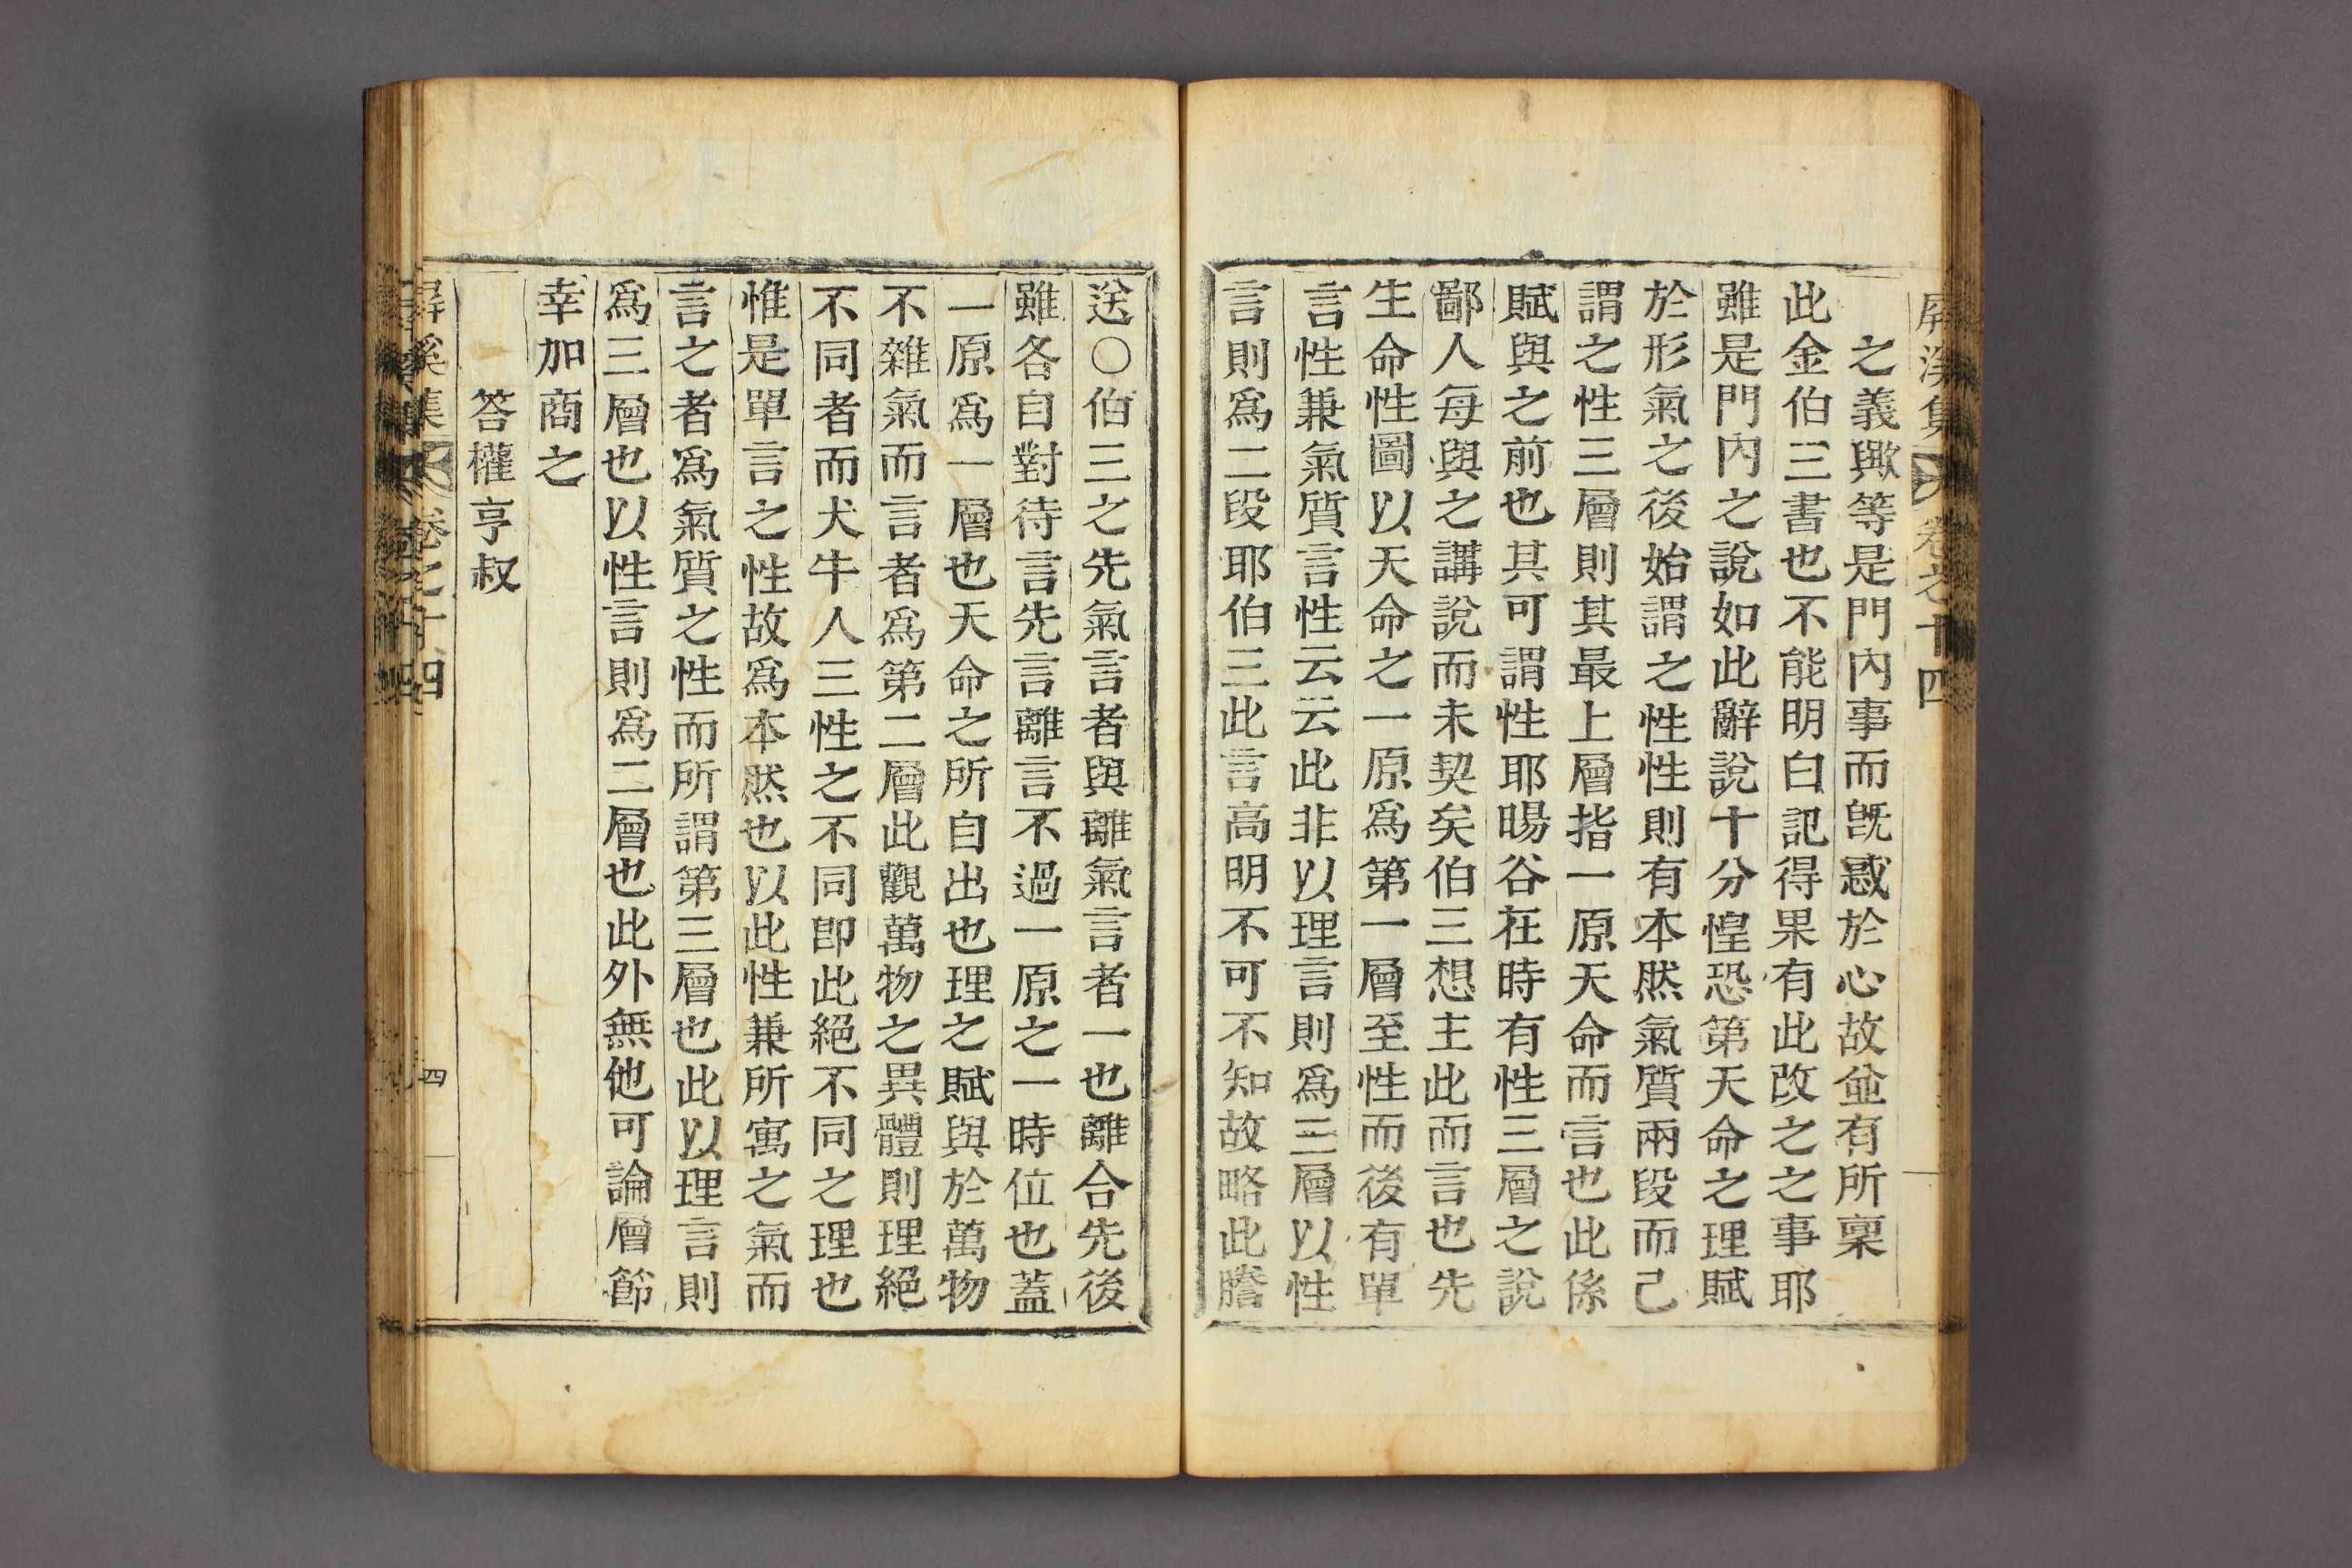 屏溪集 卷之十四
之義歟等是門內事而旣惑於心故並有所稟
此金伯三書也不能明白記得果有此改之之事耶
雖是門內之說如此辭說十分惶恐第天命之理賦
於形氣之後始謂之性性則有本然氣質兩段而已
謂之性三層則其最上層指一原天命而言也此係
賦與之前也其可謂性耶暘谷在時有性三層之說
鄙人每與之講說而未契矣伯三想主此而言也先
生命性圖以天命之一原爲第一層至性而後有單
言性兼氣質言性云云此非以理言則爲三層以性
言則爲二段耶伯三此言高明不可不知故略此謄
送○伯三之先氣言者與離氣言者一也離合先後
雖各自對待言先言離言不過一原之一時位也蓋
一原爲一層也天命之所自出也理之賦與於萬物
不雜氣而言者爲第二層此觀萬物之異體則理絕
不同者而犬牛人三性之不同即此絕不同之理也
惟是單言之性故爲本然也以此性兼所寓之氣而
言之者爲氣質之性而所謂第三層也此以理言則
爲三層也以性言則爲二層也此外無他可論層節
幸加商之
答權亨叔
屏溪集 卷之十四 四